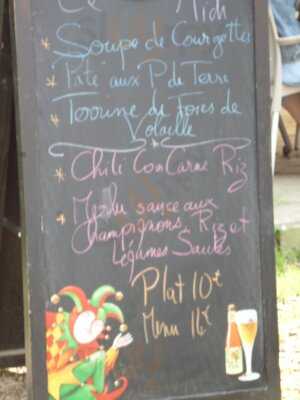 Ce Midi
* Soupe de Courgettes
* Pâté aux P. de Terre
* Terrine de Foies de
Volaille
* Chili Con Carne Riz
* Merlu sauce aux
Champignons, Riz et
Légumes Sautés
Plat 10€
Menu 16€